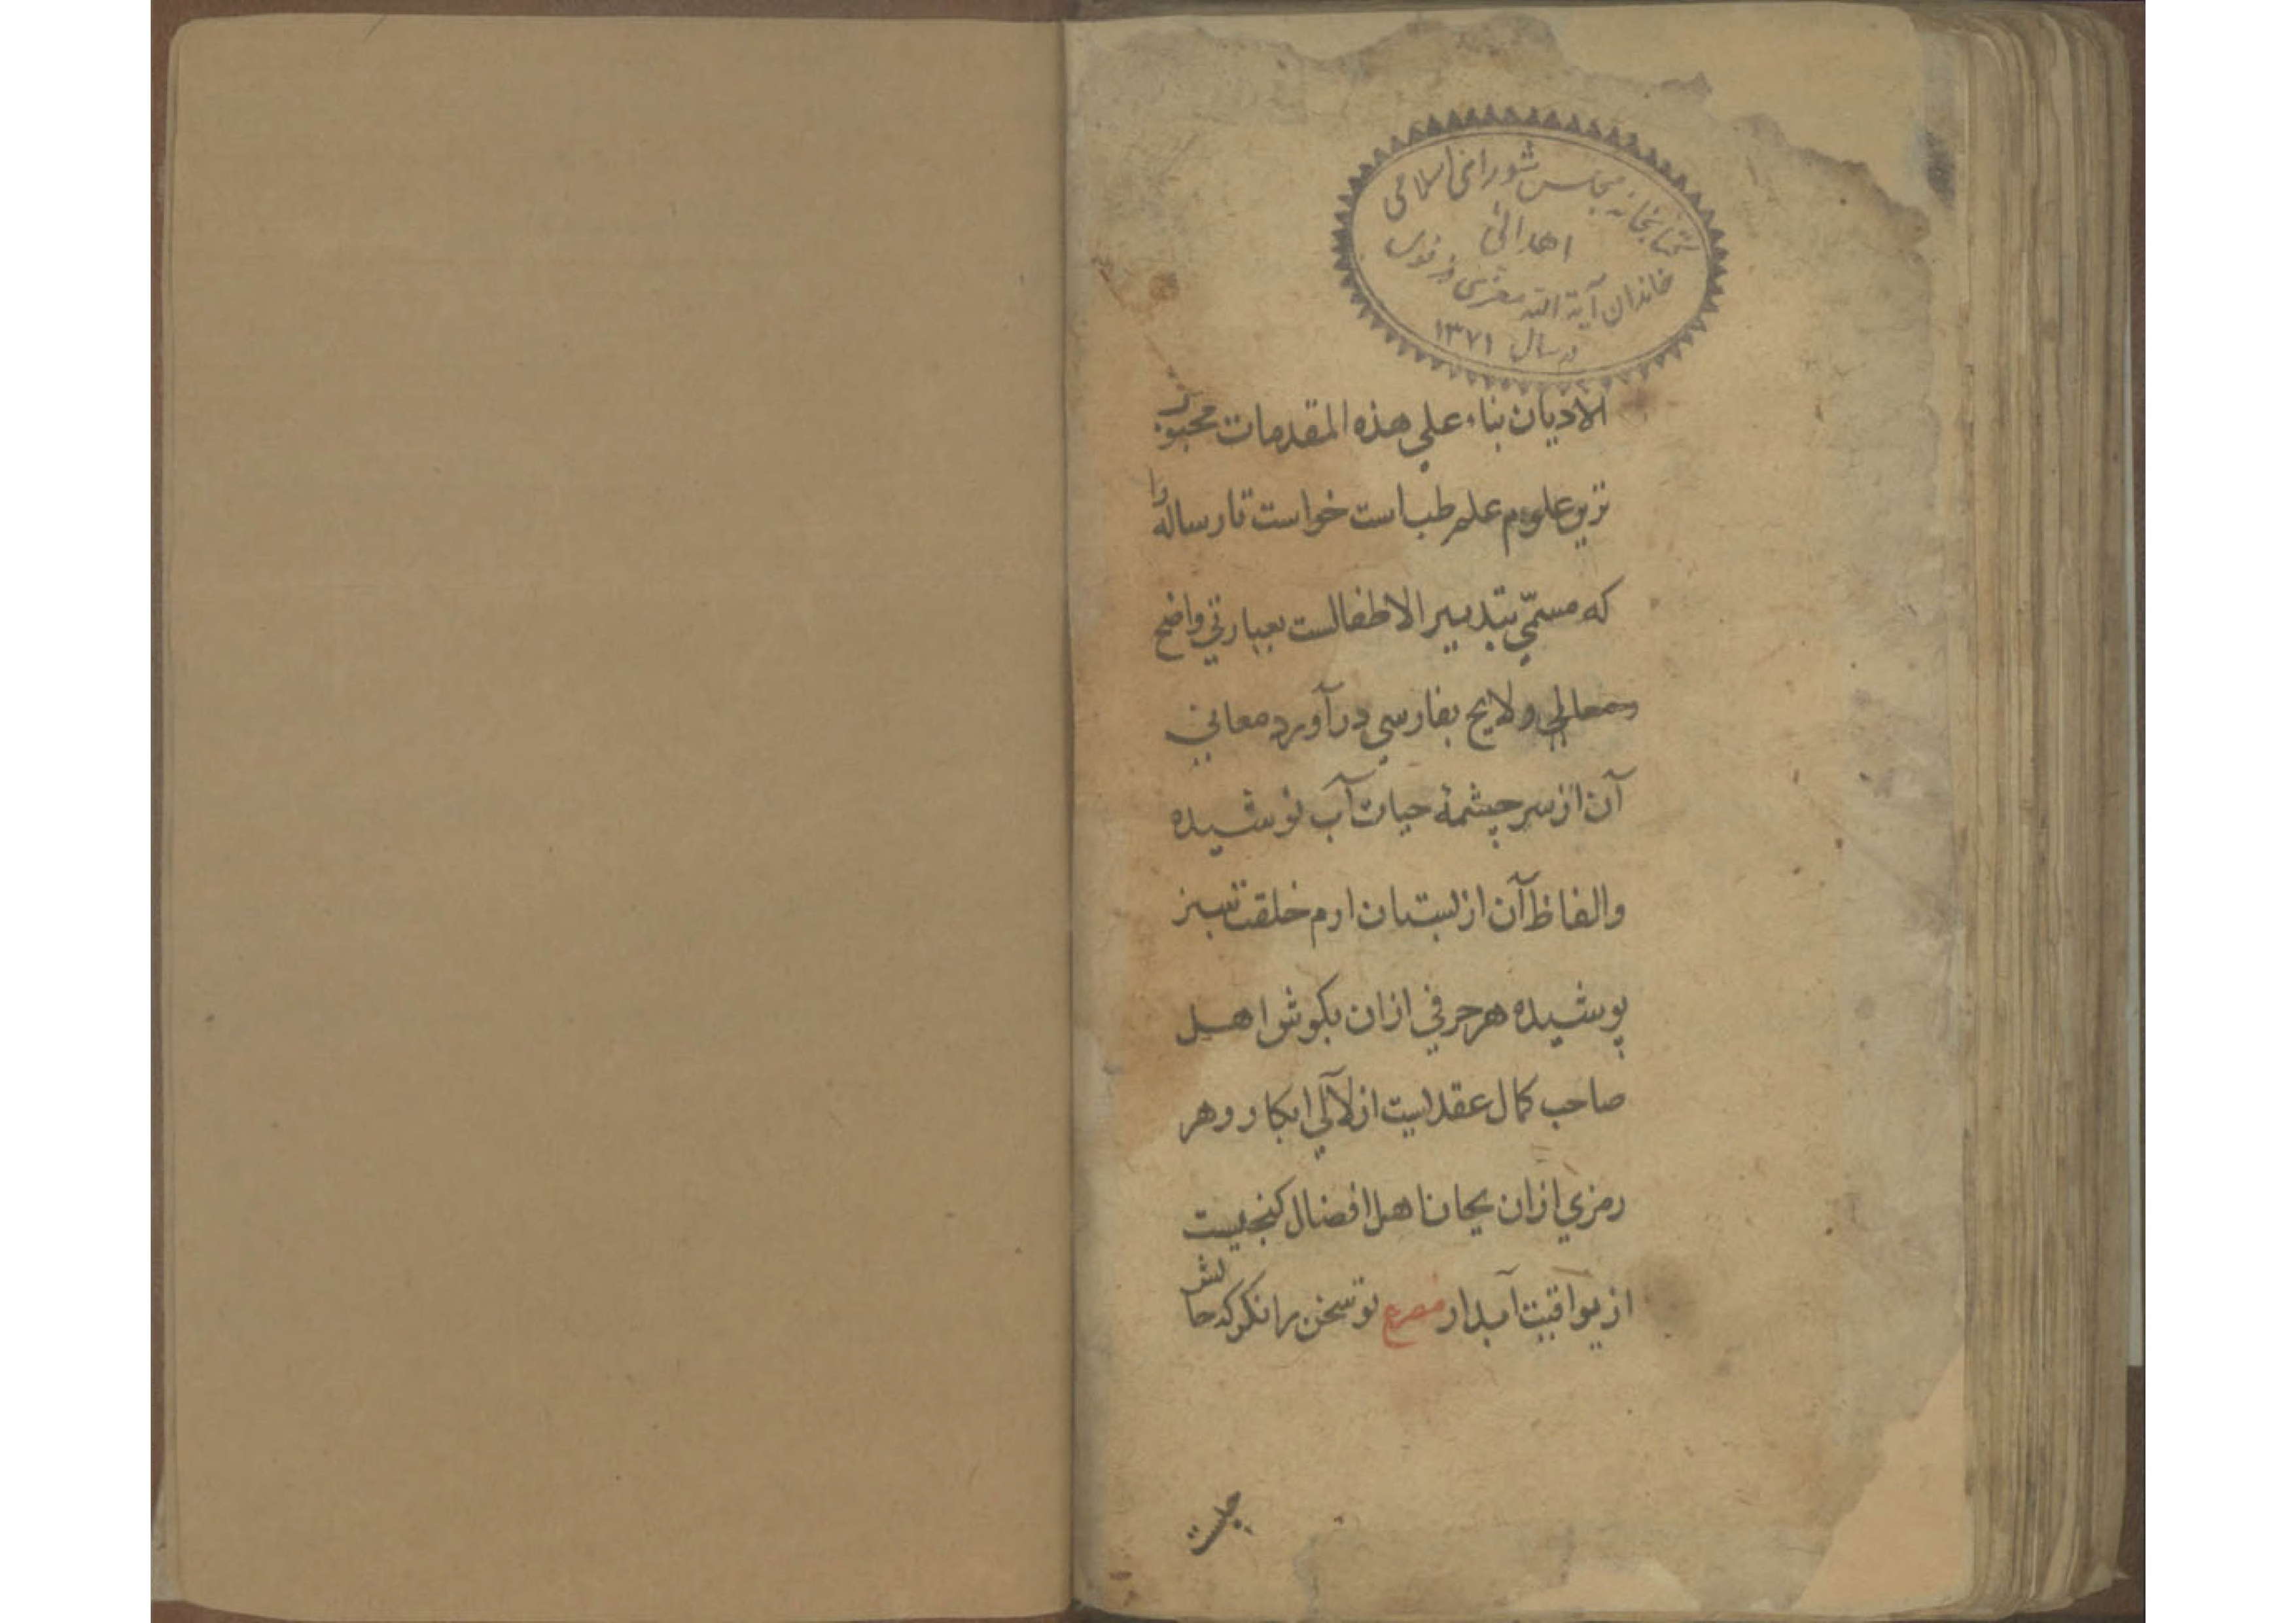 کتابخانه مجلس شورای اسلامی
اهدائی
خاندان آیة الله معزی دزفولی
در سال ۱۳۷۱
الادیان بناء علي هذه المقدمات محبوب
ترین علوم علم طب است خواست تا رساله را
که مسمّي بتدبیر الاطفالست بعبارتي واضح
ولایح بفارسي در آورد معاني
آن از سر چشمهٔ حیات آب نوشیده
والفاظ آن از بستان ارم خلقت سبز
پوشیده هر حرفي ازان بکوش اهل
صاحب کمال عقدایست از لآلي ابکار وهر
رمزي ازان بجان اهل افضال کنجیست
از یواقیت آبدار مصرع تو سخن را نکر که حالش
چیست